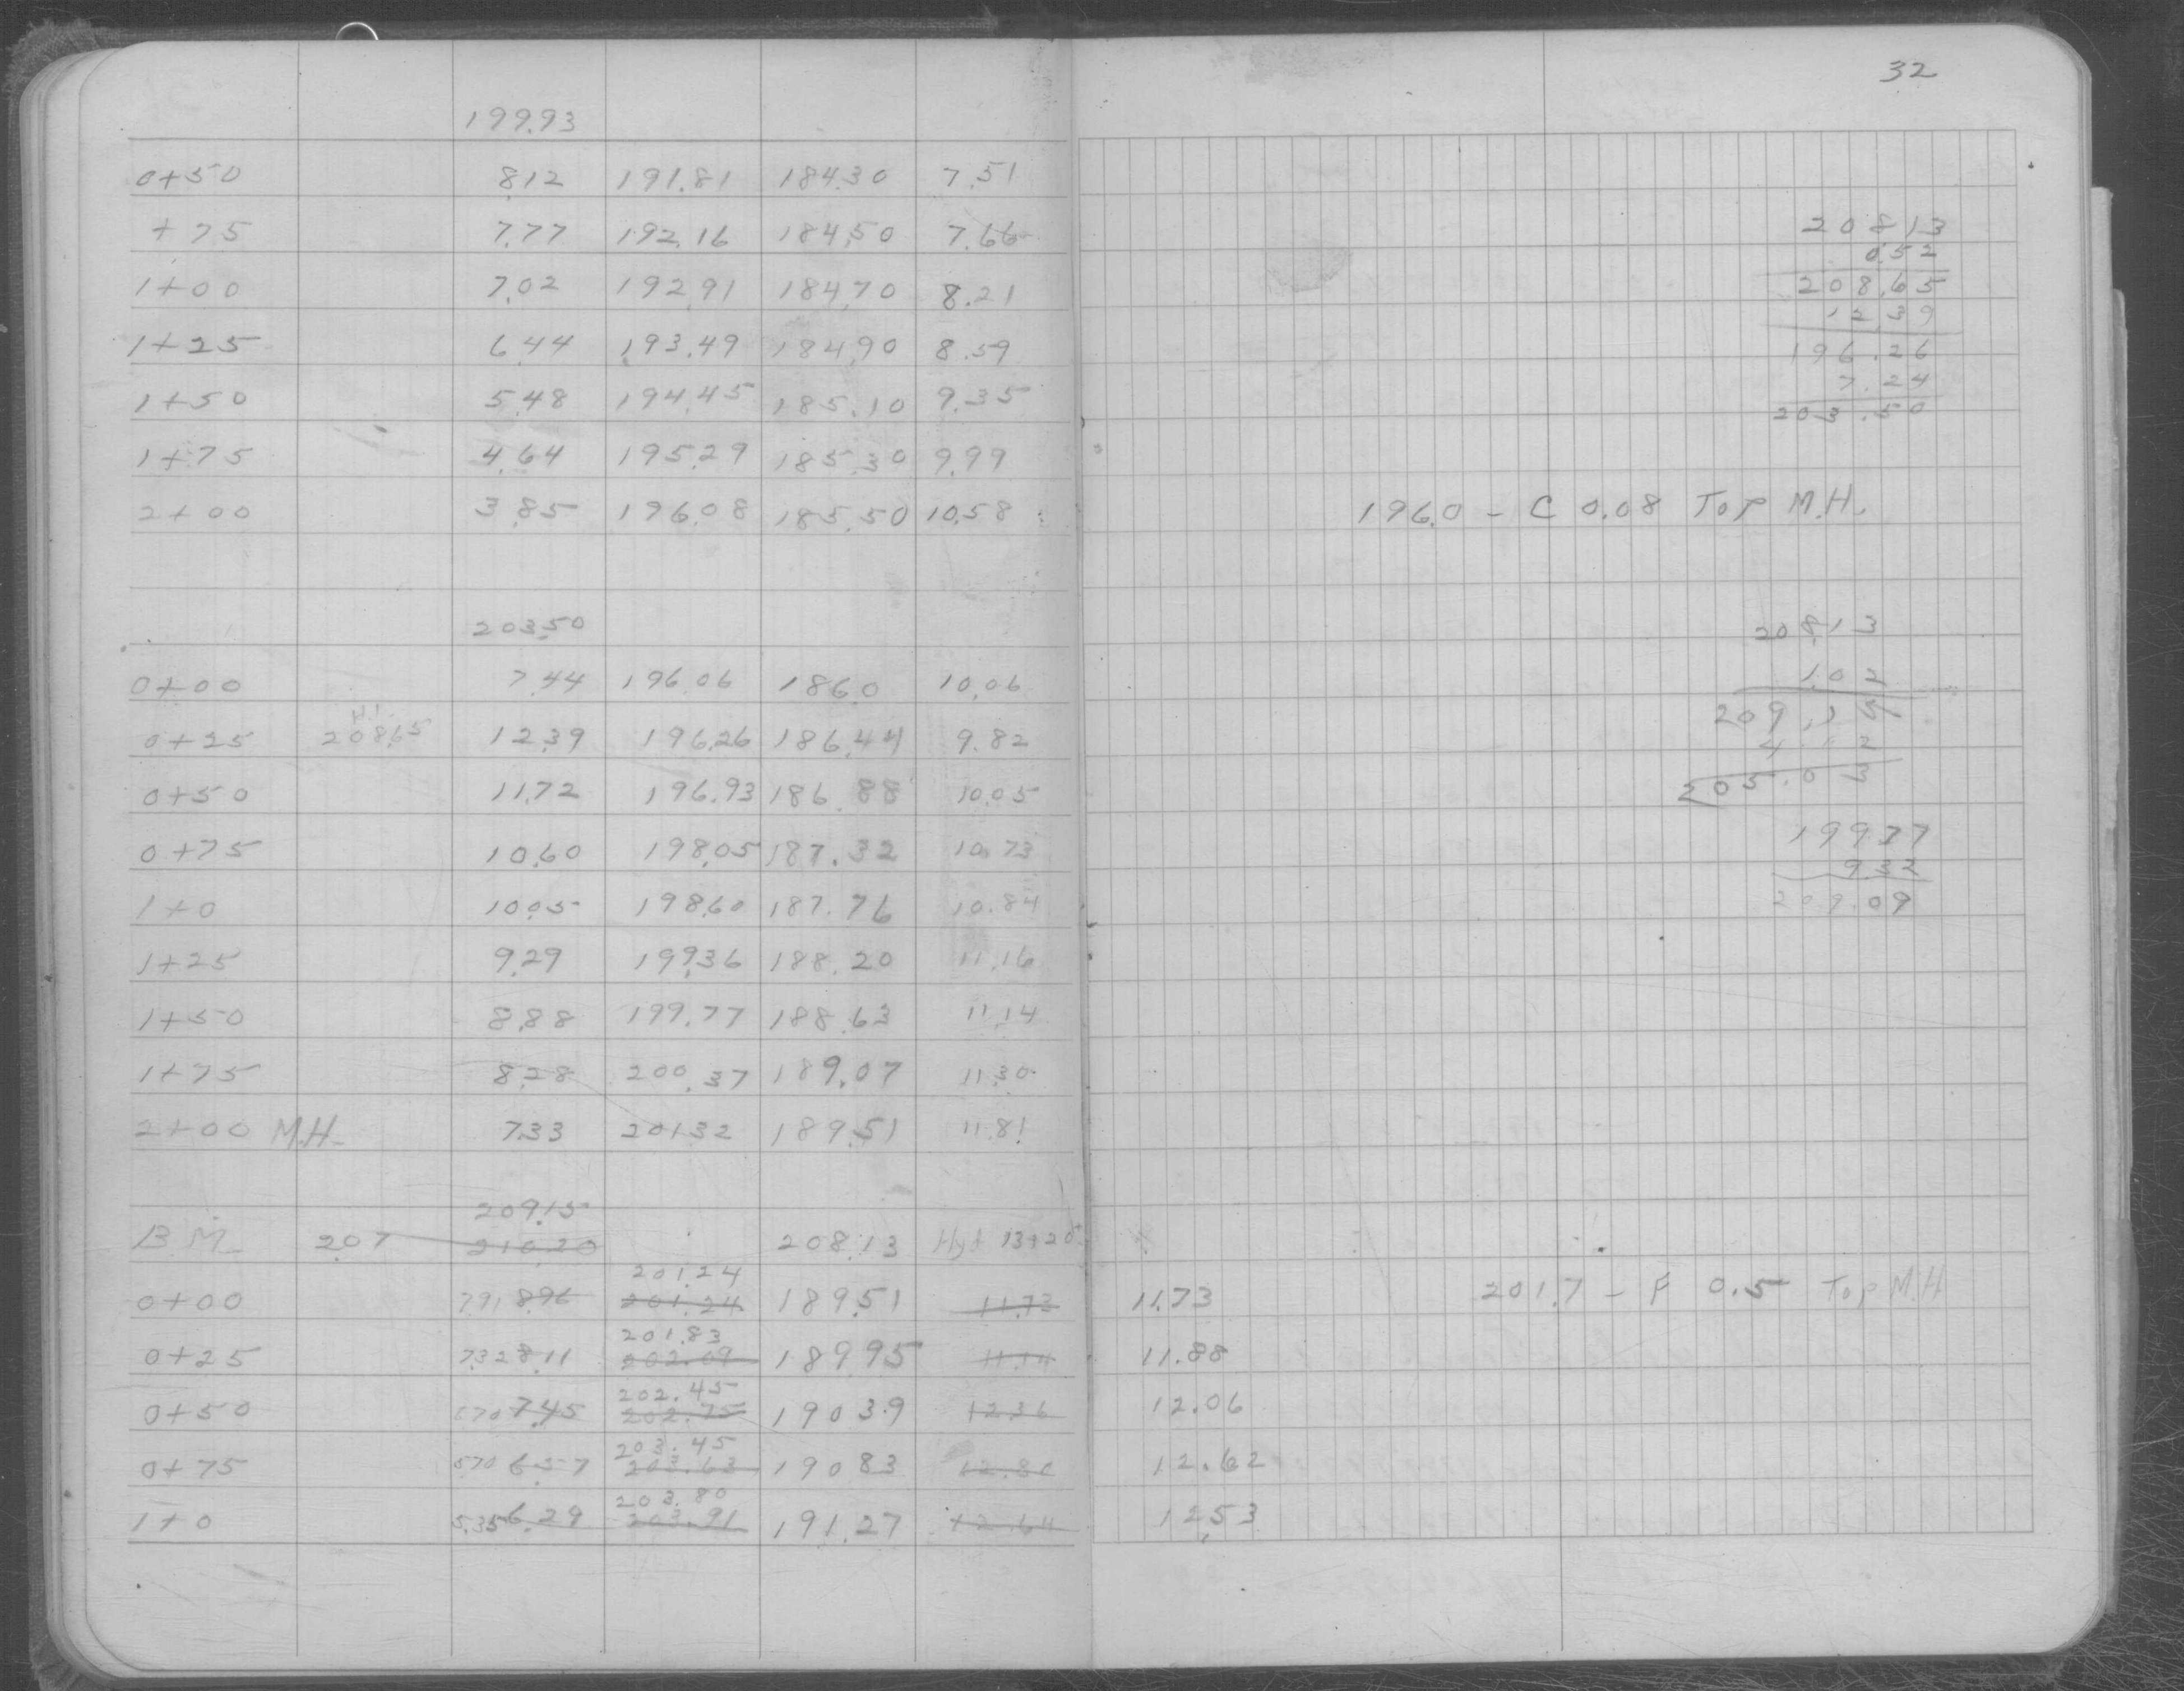 32
199.93
0+50 8.12 191.81 184.30 7.51
+75 7.77 192.16 184.50 7.66
1+00 7.02 192.91 184.70 8.21
1+25 6.44 193.49 184.90 8.59
1+50 5.48 194.45 185.10 9.35
1+75 4.64 195.29 185.30 9.99
2+00 3.85 196.08 185.50 10.58
203.50
0+00 7.44 196.06 186.0 10.06
H.I.
0+25 208.65 12.39 196.26 186.44 9.82
0+50 11.72 196.93 186.88 10.05
0+75 10.60 198.05 187.32 10.73
1+0 10.05 198.60 187.76 10.84
1+25 9.29 199.36 188.20 11.16
1+50 8.88 199.77 188.63 11.14
1+75 8.28 200.37 189.07 11.30
2+00 M.H. 7.33 201.32 189.51 11.81
209.15
B.M. 2.07 210.20 208.13 Hyd 13+20
201.24
0+00 7.91 8.96 201.24 189.51 11.73
201.83
0+25 7.32 8.11 202.09 189.95
202.45
0+50 6.70 7.45 202.75 190.39 12.36
203.45
0+75 5.70 6.57 203.63 190.83 12.80
203.80
1+0 5.35 6.29 203.91 191.27 12.64
208.13
0.52
208.65
12.39
196.26
7.24
203.50
196.0 - C 0.08 Top M.H.
208.13
1.02
209.15
4.12
205.03
199.77
9.32
209.09
11.73 201.7 - F 0.5 Top M.H
11.88
12.06
12.62
12.53